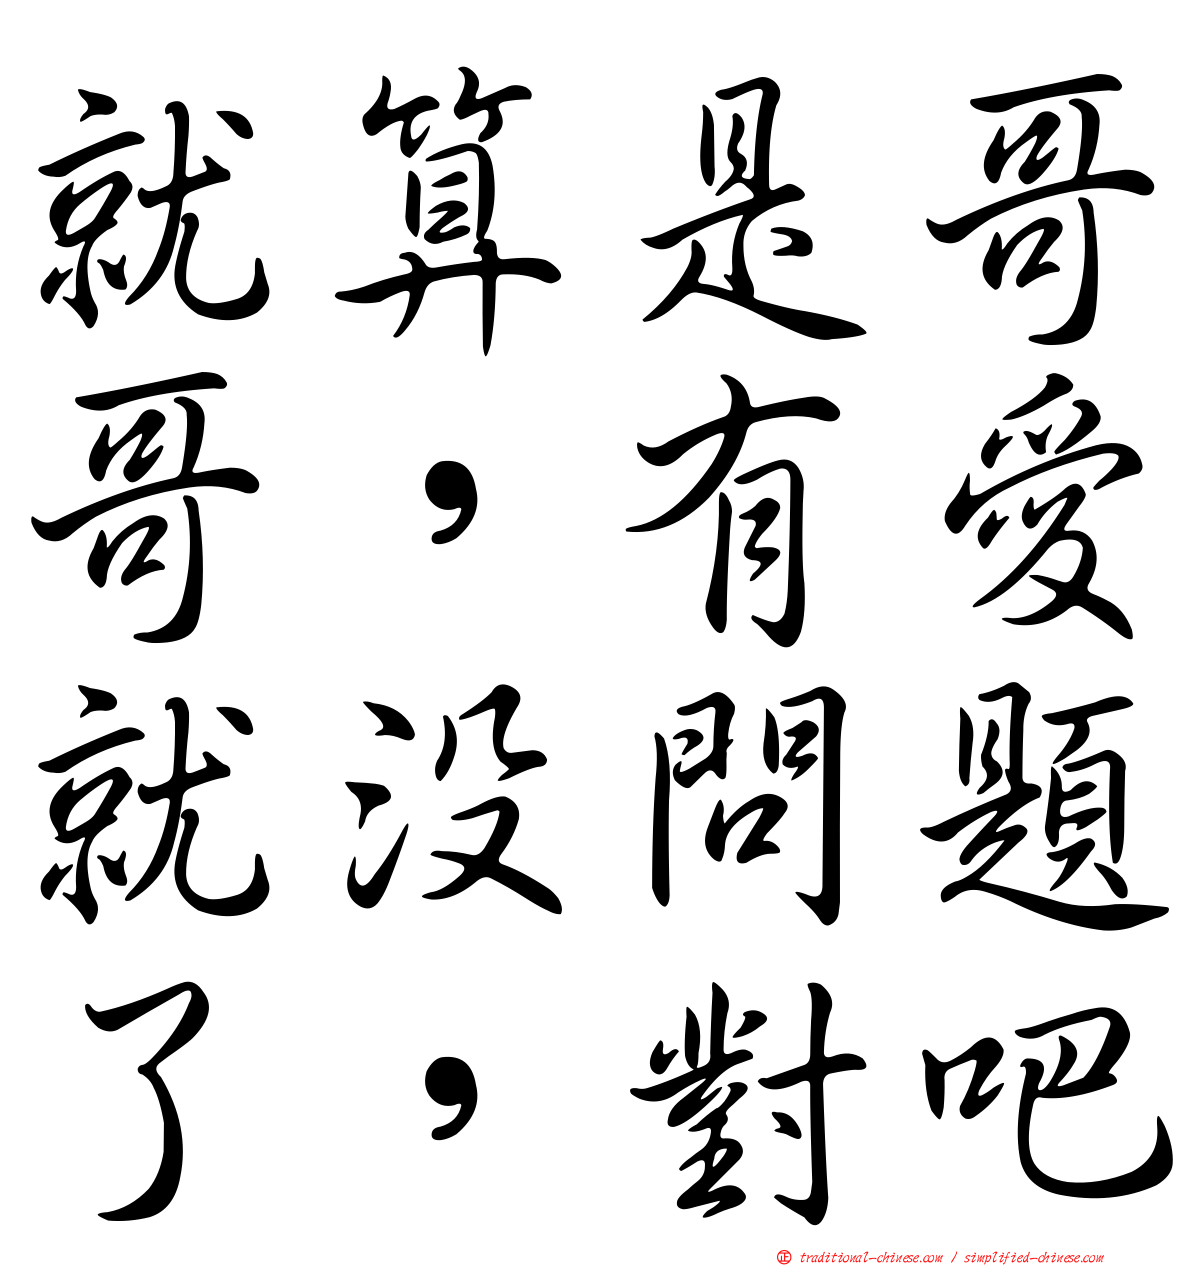 就算是哥
哥，有愛
就沒問題
了，對吧
正 traditional-chinese.com / simplified-chinese.com